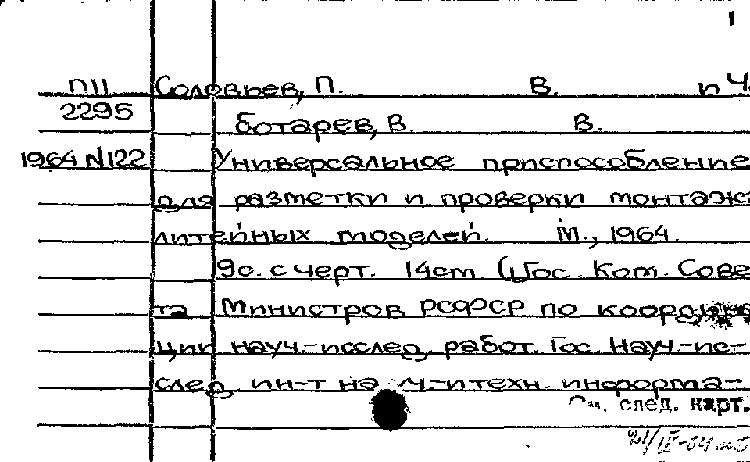 1
П11 Соловьев, П. В. и Че
2295 ботарев, В. В.
1964 N122 Универсальное приспособление
для разметки и проверки монтаж
литейных моделей. М., 1964.
9с. с черт. 14см. (Гос. Ком. Сове
та Министров РСФСР по коорд
ции науч.-исслед. работ. Гос. Науч.-ис-
след. ин-т на -и техн. информа-
См. след. карт.